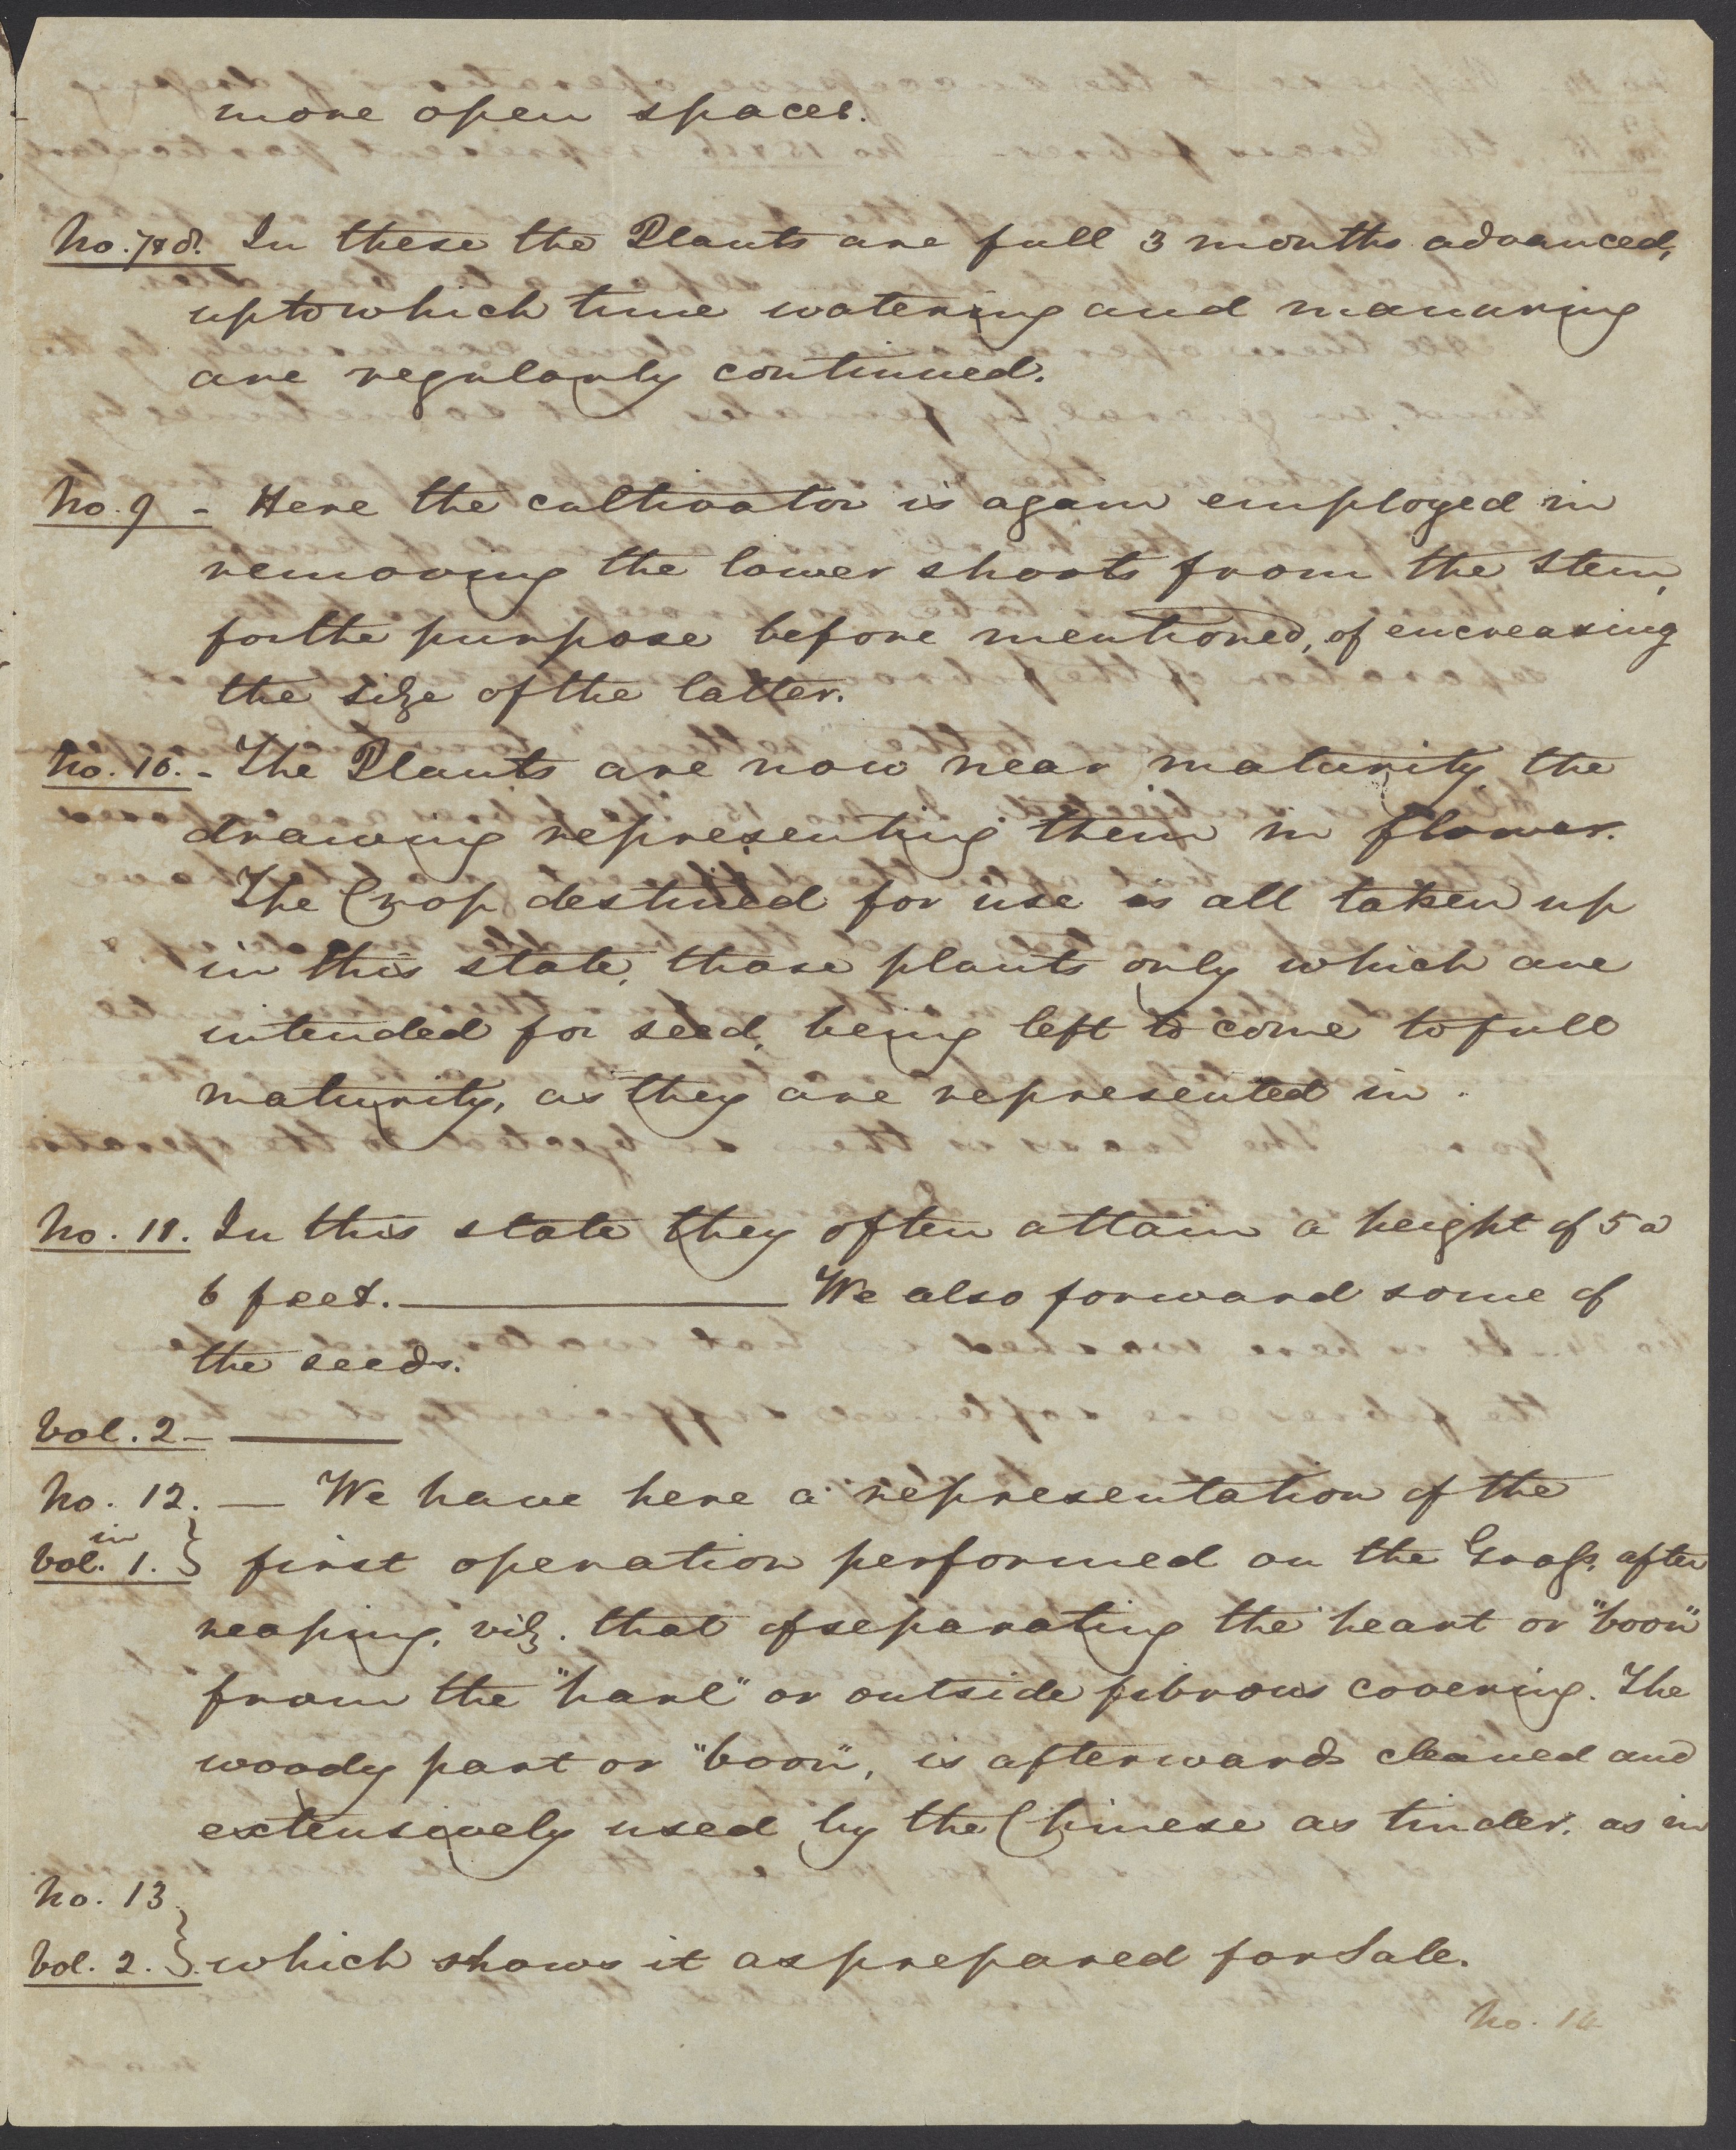 more open spaces.
No. 7 & 8. In these the Plants are full 3 months advanced,
up to which time watering and manuring
are regularly continued.
No. 9 - Here the cultivator is again employed in
removing the lower shoots from the Stem,
for the purpose before mentioned, of encreasing
the size of the latter.
No. 10. - The Plants are now near maturity, the
drawing representing them in flower.
The Crop destined for use is all taken up
in this state, those plants only which are
intended for seed, being left to come to full
maturity, as they are represented in.
No. 11. In this state they often attain a height of 5 a
6 feet. — We also forward some of
the seeds.
Vol. 2 — —
No. 12. — We have here a representation of the
in
Vol. 1. } first operation performed on the Grass, after
reaping, viz. that of separating the heart or "boon"
from the "harl" or outside fibrous covering. The
woody part or "boon", is afterwards cleaned and
extensively used by the Chinese as tinder, as in
No. 13
Vol. 2. } which shows it as prepared for Sale.
No. 14